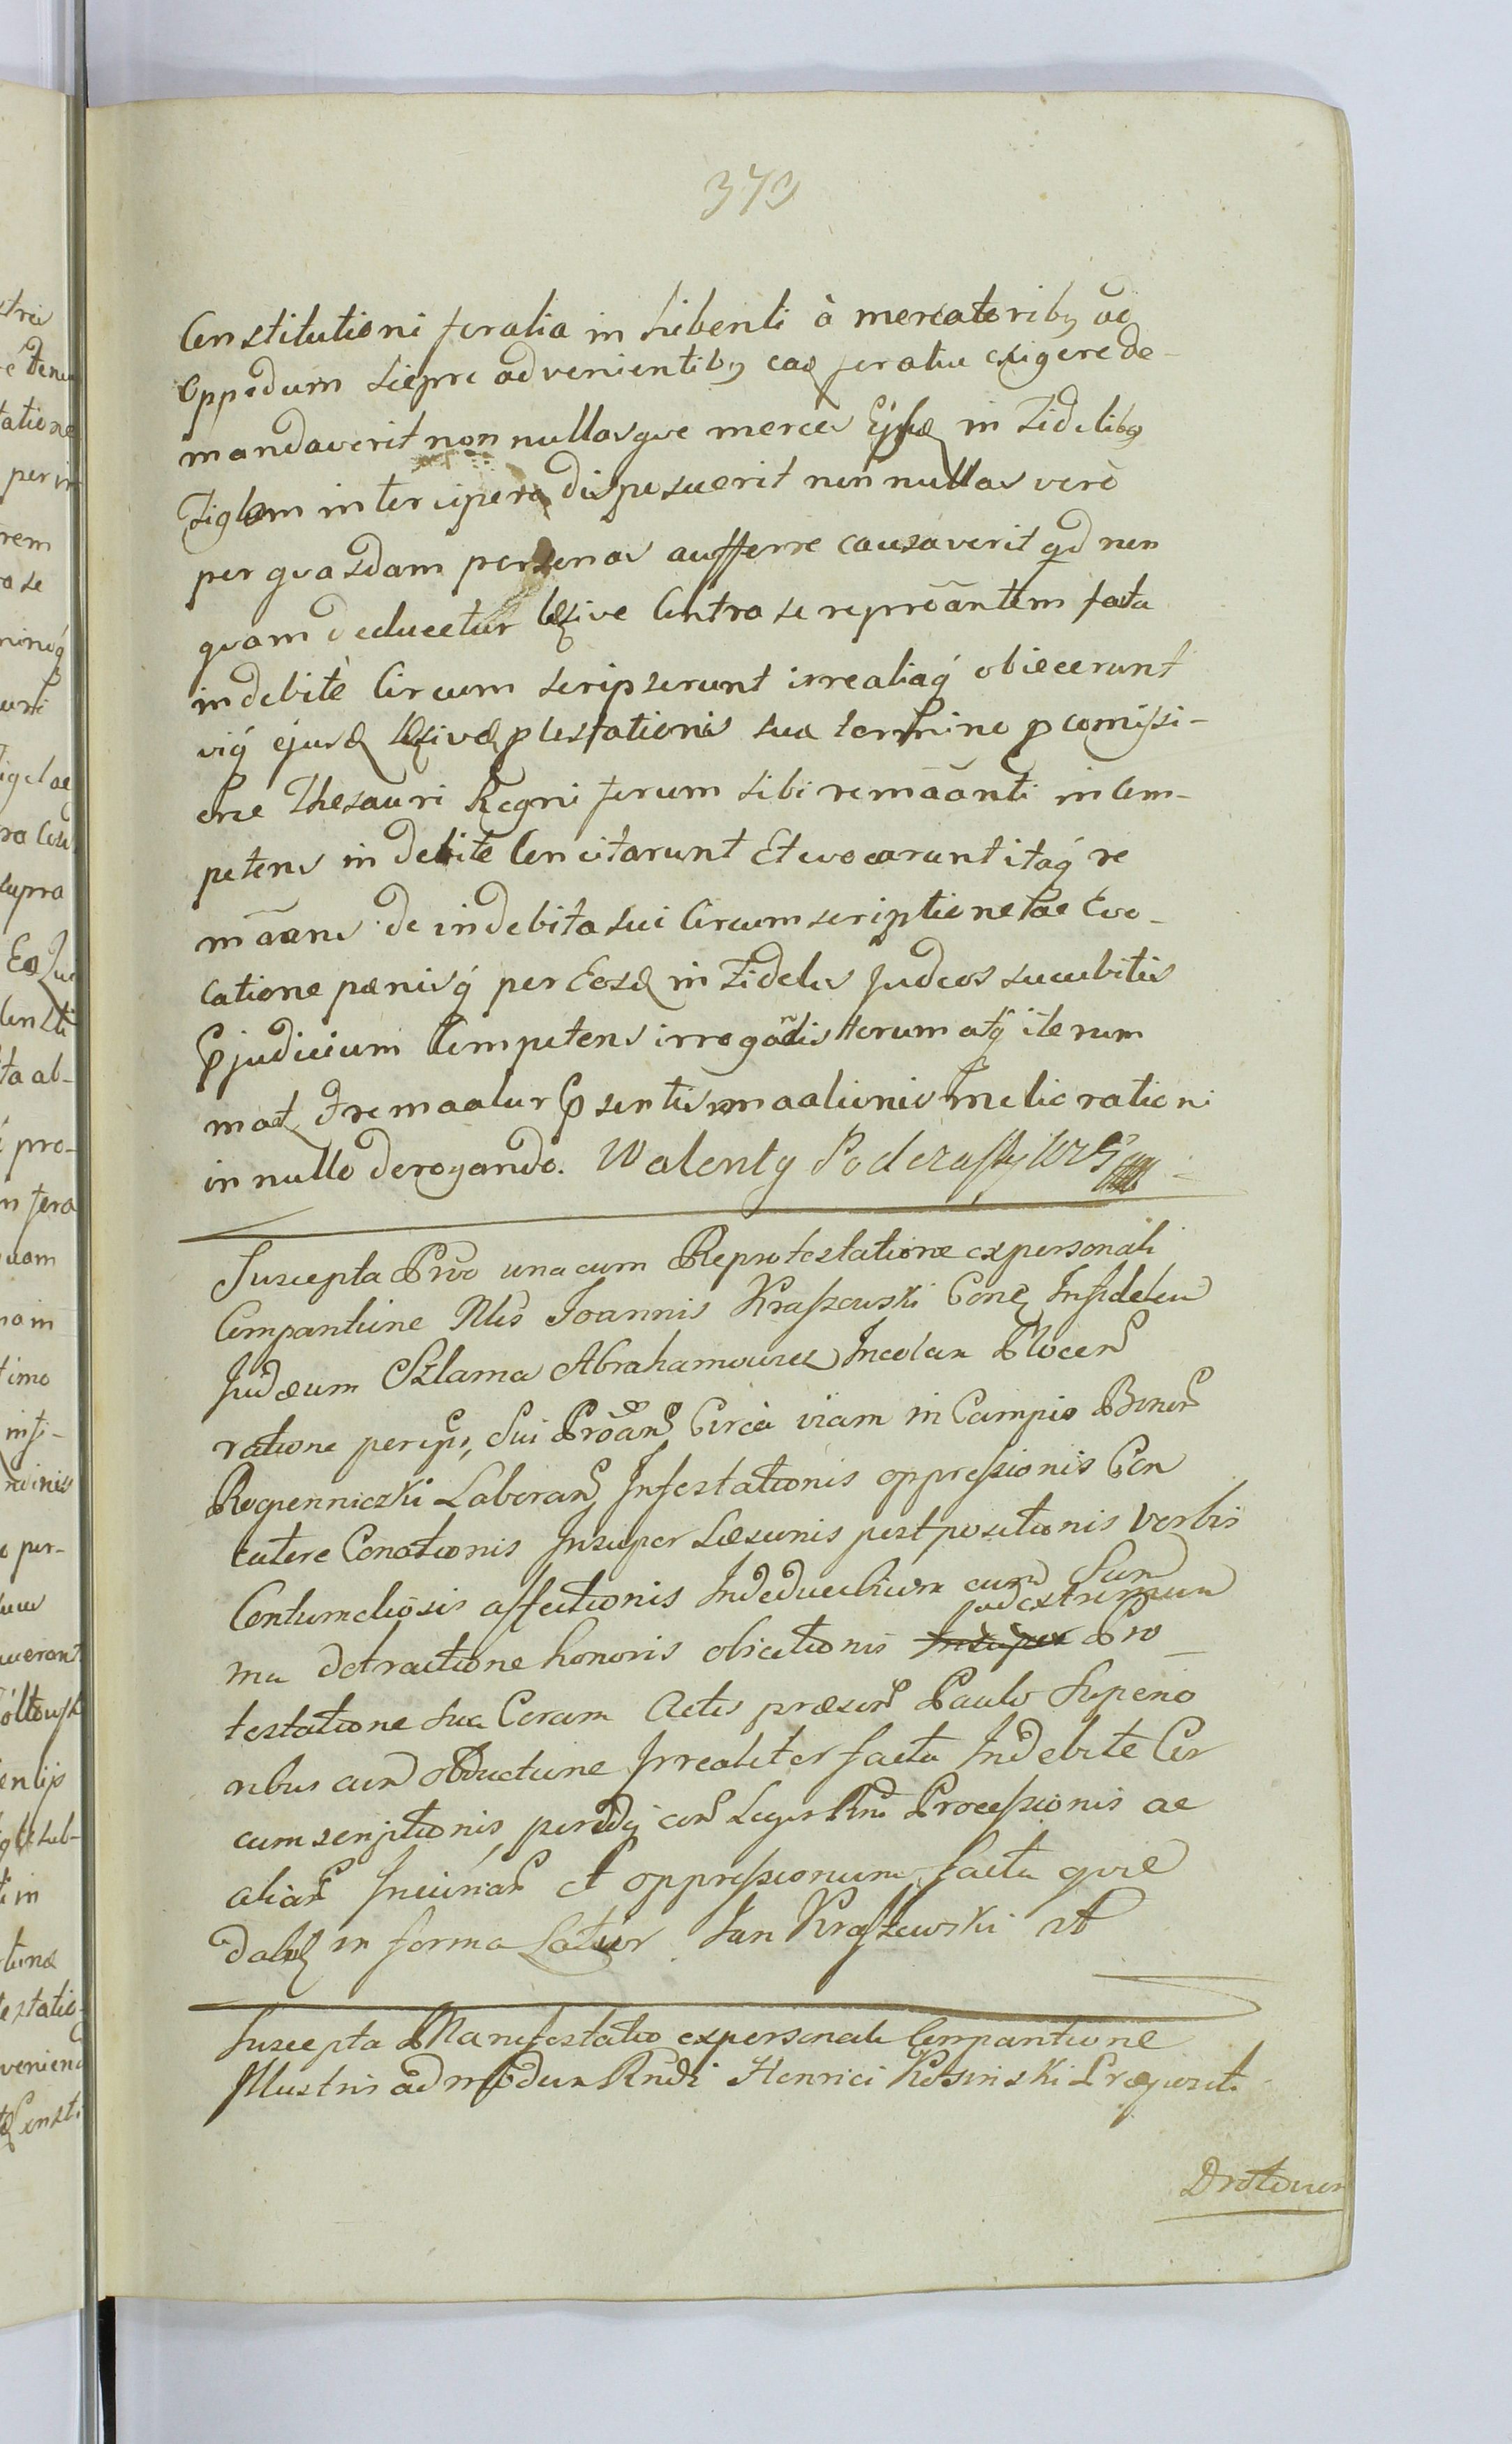 379
Constitutioni foralia in hibenti à mercatoribq ad
Oppidum Siepre advenientibq eaq foralia exigere de-
mandaverit non nullasque merces Ejusq in fidelibq
Figlam intercipere disposuerit non nullas verò
per quasdam personas aufferre causaverit qd non
quam deducetur lxsive Contra se reproãntem facta
indebitè Circum scripserunt irrealiaq́ obiecerunt
viq́ ejusd lxsivæ ptestationis sua termino p comissi-
one Thesauri Regni forum sibi remãanti in Com-
petens in debite Concitarunt Et evocarunt itaq́ re
mãans de indebita sui Circum scriptione tae Evo-
catione pænisq́ per Eosd in fideles Judeos sucubitis
p judicium Competens irrogãdis iterum atq́ iterum
mat, et remaatur p sentis maationis meliorationi
in nullo derogando. Walenty Podczaski
Suscepta Prõo unacum Reprotestatione ex personali
Comparitione Nlis Joannis Kraszewski Cone Infidelem
Judæum Szlama Abrahamowicz Incolam Plocen
ratione percuss, Sui Proãn Circa viam in Campis Bonor
Rogienniczki Laboran Infestationis oppressionis Con
cutere Conationis Insuper Læsionis postpositionis Verbis
Contumeliosis affectionis Indeducibium cum Sum
ma detractione honoris obiectionis ad extremum Pro
testatione sua Coram Actis præsen Paulo Superio
ribus cum obductione Irrealiter facta Indebite Cir
cum scriptionis, Leges Rni Processionis ac
aliar Iniuriar et oppressionum facta quæ
dabit in forma Latior Jan Kraszewski
Suscepta Manifestatio ex personali Comparitione
Illustris admodum Rndi Henrici Kosinski Præpositi